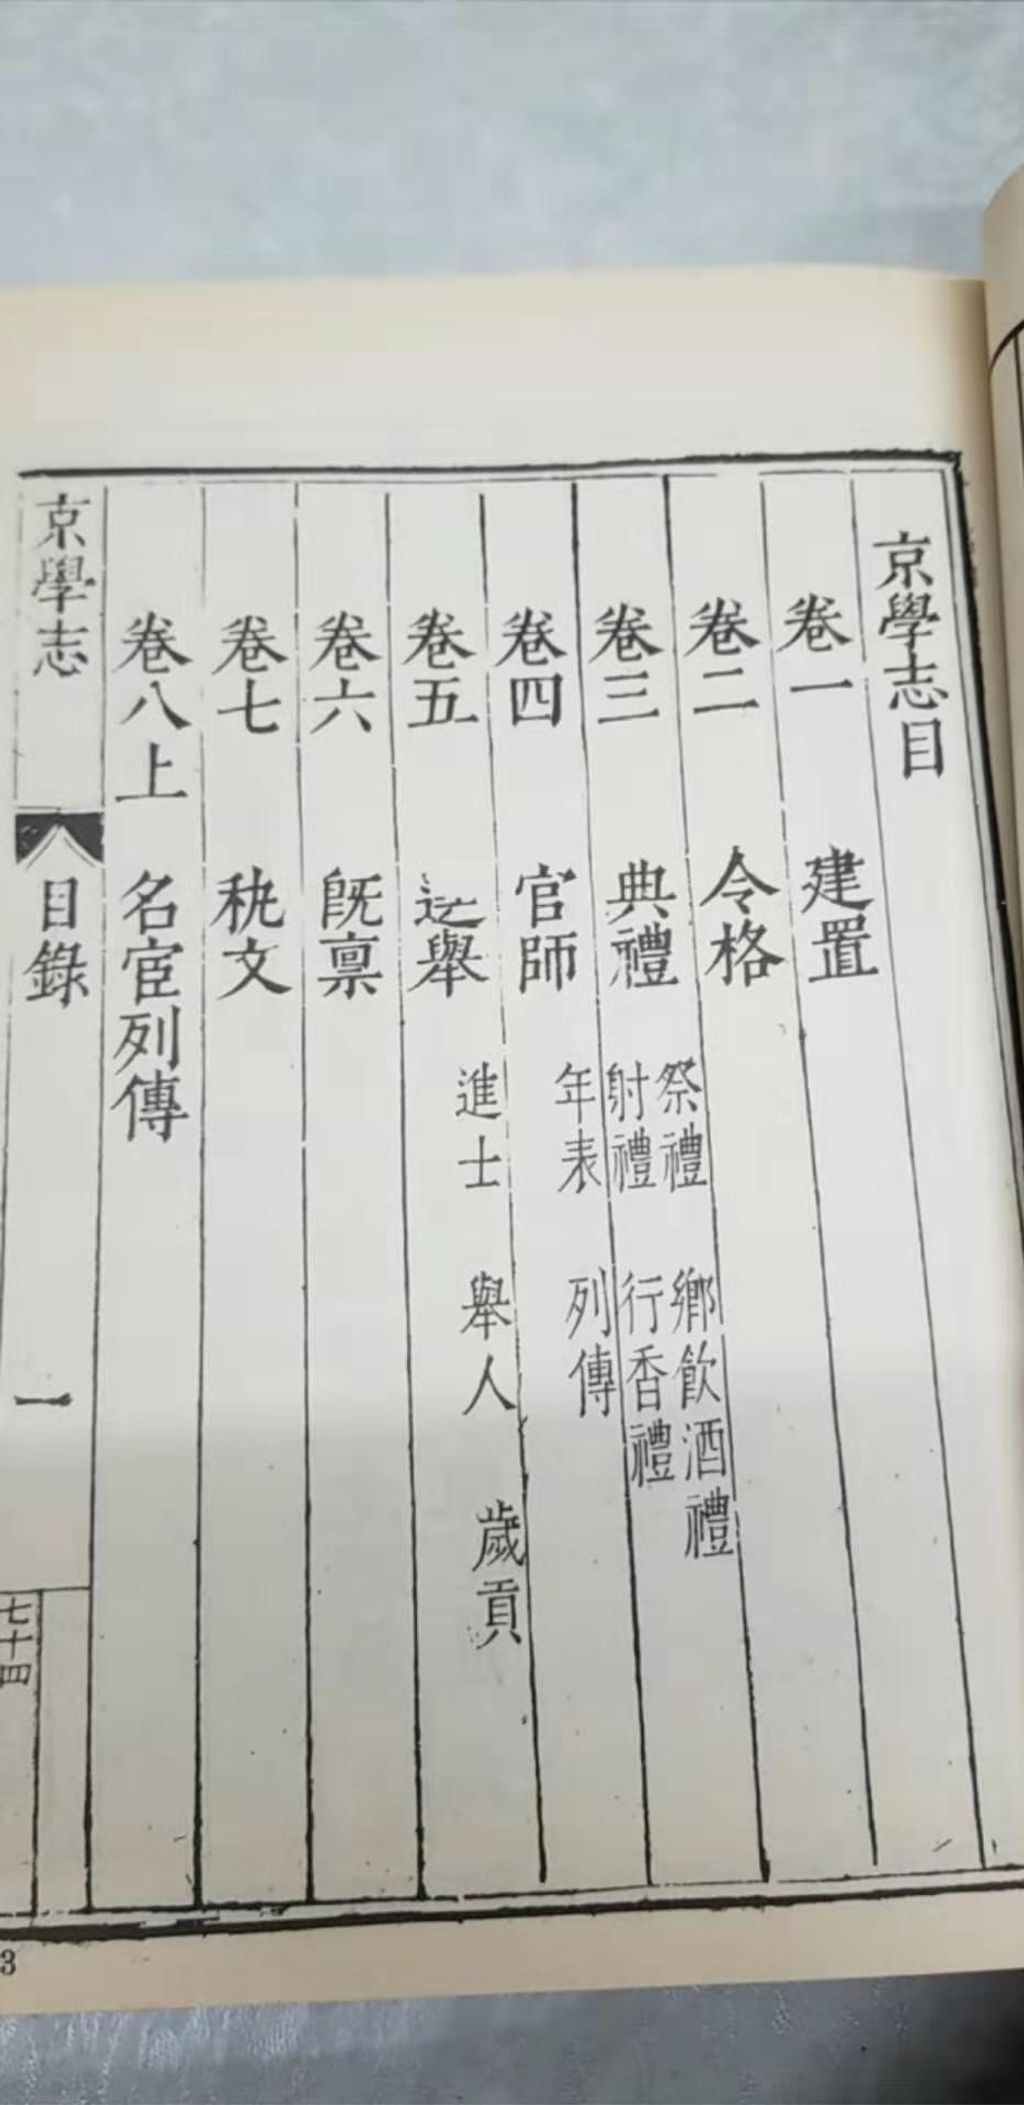 京學志目
卷一 建置
卷二 令格
卷三 典禮 祭禮 鄉飲酒禮
射禮 行香禮
卷四 官師 年表 列傳
卷五 舉 進士 舉人 歲貢
卷六 既稟
卷七 文
卷八上 名宦列傳
京學志 目錄 一
七十四
3